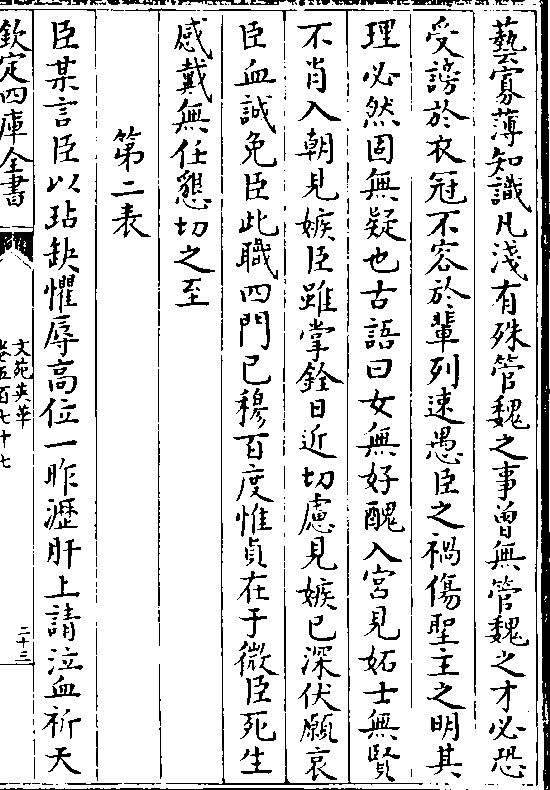 藝寡薄知識凡淺有殊管魏之事曾無管魏之才必恐
受謗於衣冠不容於輩列速愚臣之禍傷聖主之明其
理必然固無疑也古語曰女無好醜入宮見妬士無賢
不肖入朝見嫉臣雖掌銓日近切慮見嫉已深伏願哀
臣血誠免臣此職四門已穆百度惟貞在于微臣死生
感戴無任懇切之至
第二表
臣某言臣以玷缺懼辱高位一昨瀝肝上請泣血祈天
欽定四庫全書
文苑英華
卷五百七十七
二十三